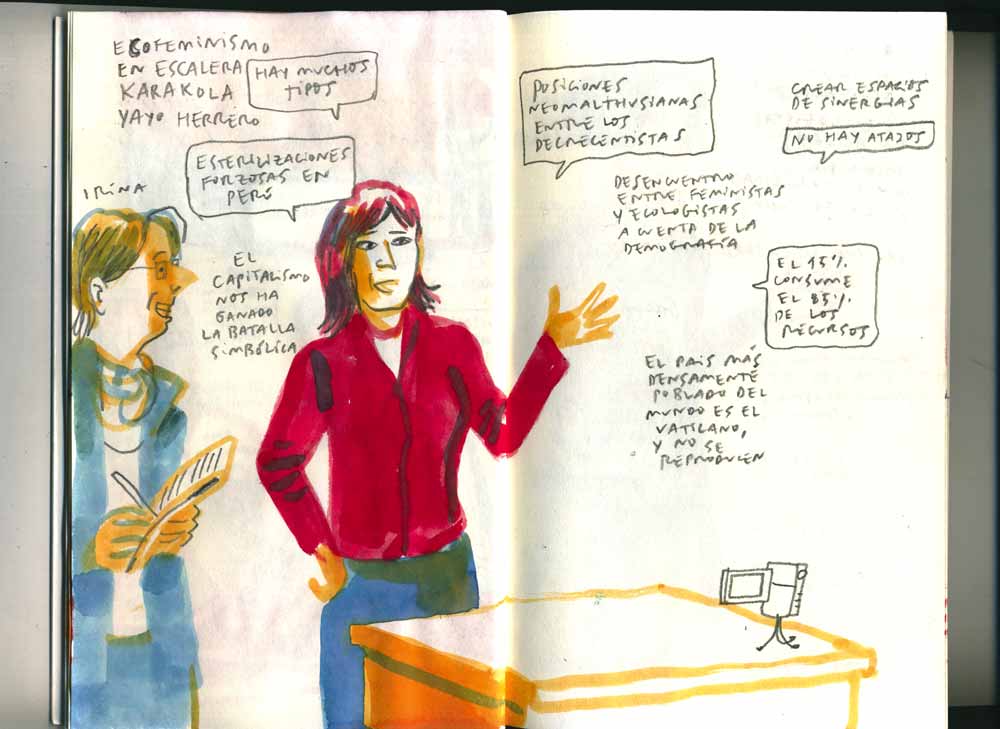 ECOFEMINISMO
EN ESCALERA
KARAKOLA
YAYO HERRERO
HAY MUCHOS
TIPOS
ESTERILIZACIONES
FORZOSAS EN
PERÚ
IRINA
EL
CAPITALISMO
NOS HA
GANADO
LA BATALLA
SIMBÓLICA
POSICIONES
NEOMALTHUSIANAS
ENTRE LOS
DECRECENTISTAS
CREAR ESPACIOS
DE SINERGIAS
NO HAY ATAJOS
DESENCUENTRO
ENTRE FEMINISTAS
Y ECOLOGISTAS
A CUENTA DE LA
DEMOGRAFÍA
EL 15%
CONSUME
EL 85%
DE LOS
RECURSOS
EL PAIS MÁS
DENSAMENTE
POBLADO DEL
MUNDO ES EL
VATICANO,
Y NO SE
REPRODUCEN